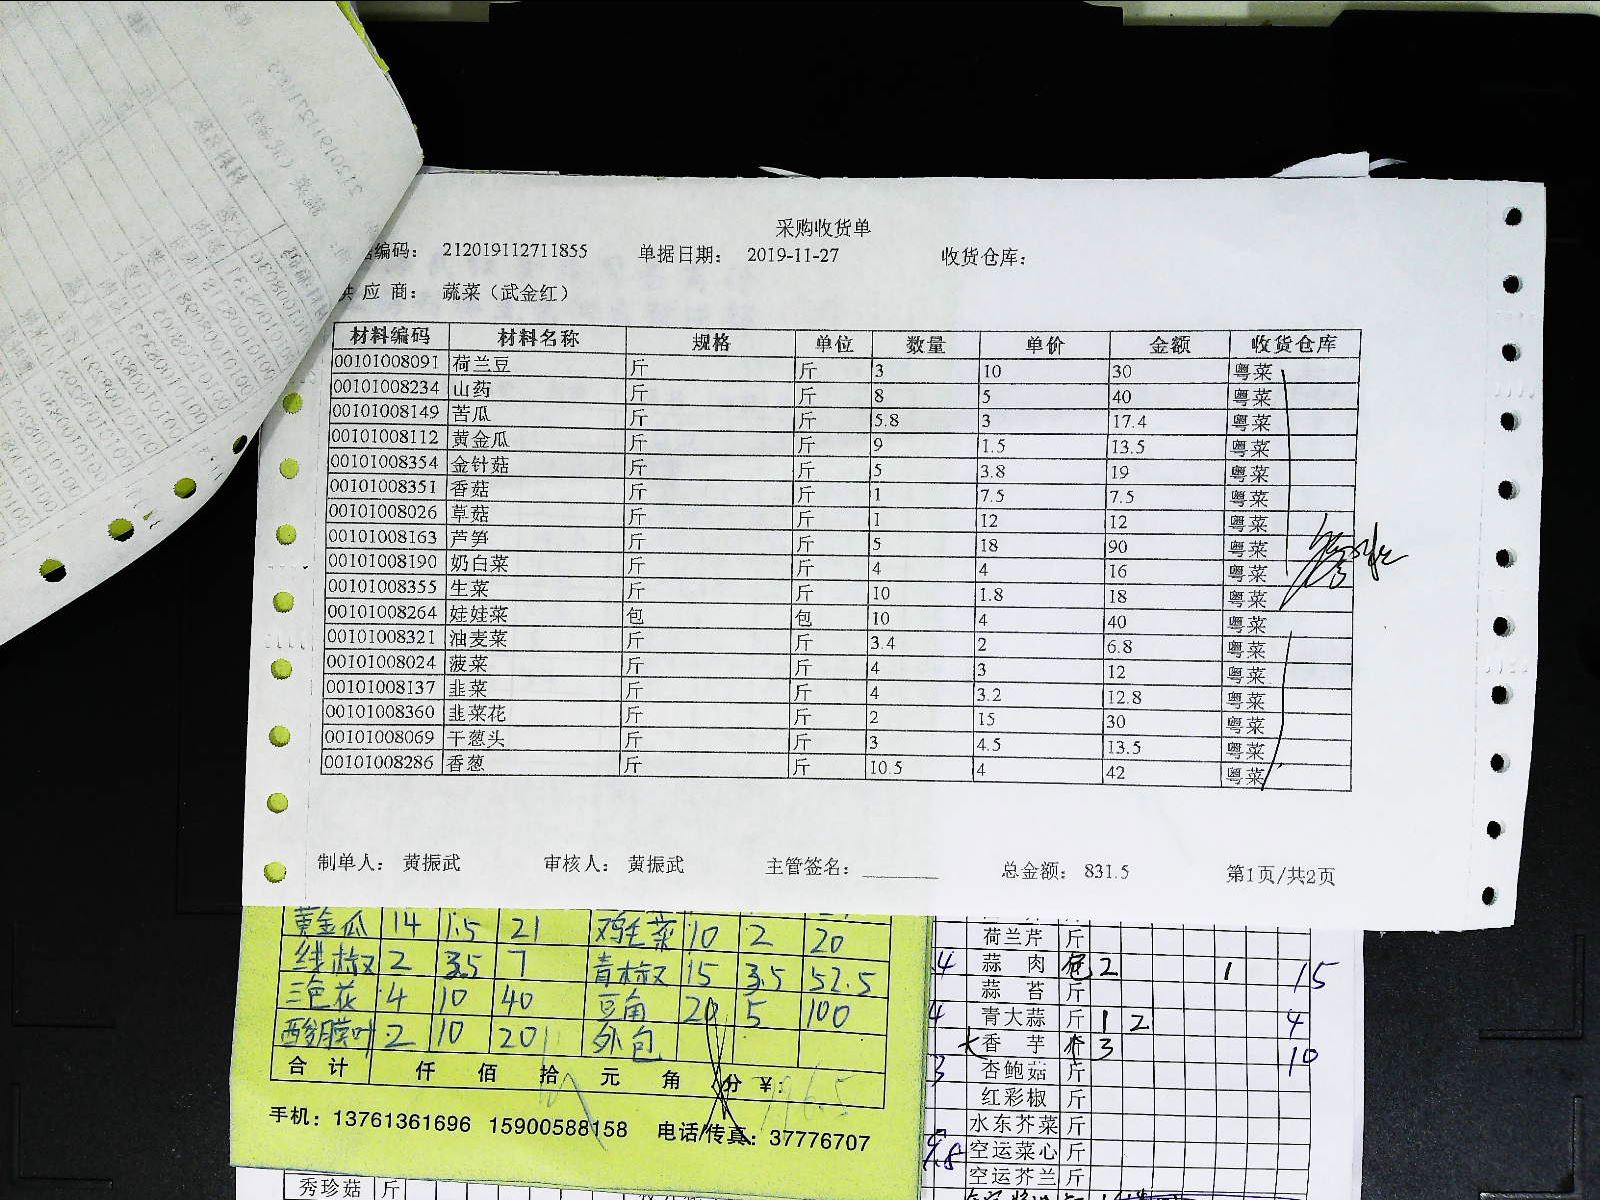 采购收货单
编码： 212019112711855 单据日期： 2019-11-27 收货仓库：
供 应 商： 蔬菜（武金红）
材料编码 材料名称 规格 单位 数量 单价 金额 收货仓库
00101008091 荷兰豆 斤 斤 3 10 30 粤菜
00101008234 山药 斤 斤 8 5 40 粤菜
00101008149 苦瓜 斤 斤 5.8 3 17.4 粤菜
00101008112 黄金瓜 斤 斤 9 1.5 13.5 粤菜
00101008354 金针菇 斤 斤 5 3.8 19 粤菜
00101008351 香菇 斤 斤 1 7.5 7.5 粤菜
00101008026 草菇 斤 斤 1 12 12 粤菜
00101008163 芦笋 斤 斤 5 18 90 粤菜
00101008190 奶白菜 斤 斤 4 4 16 粤菜
00101008355 生菜 斤 斤 10 1.8 18 粤菜
00101008264 娃娃菜 包 包 10 4 40 粤菜
00101008321 油麦菜 斤 斤 3.4 2 6.8 粤菜
00101008024 菠菜 斤 斤 4 3 12 粤菜
00101008137 韭菜 斤 斤 4 3.2 12.8 粤菜
00101008360 韭菜花 斤 斤 2 15 30 粤菜
00101008069 干葱头 斤 斤 3 4.5 13.5 粤菜
00101008286 香葱 斤 斤 10.5 4 42 粤菜
制单人： 黄振武 审核人： 黄振武 主管签名： 总金额： 831.5 第1页/共2页
黄金瓜 14 1.5 21 鸡毛菜 10 2 20
线椒 2 3.5 7 青椒 15 3.5 52.5
三色花 4 10 40 豆角 20 5 100
酸膜叶 2 10 20 外包
合 计 仟 佰 拾 元 角 分 ￥：
手机：13761361696 15900588158 电话/传真：37776707
荷兰芹 斤
4 蒜 肉 包 2 1 15
蒜 苔 斤
4 青大蒜 斤 1 2 4
大香 芋 个 3 10
3 杏鲍菇 斤
红彩椒 斤
水东芥菜 斤
空运菜心 斤
空运芥兰 斤
秀珍菇 斤